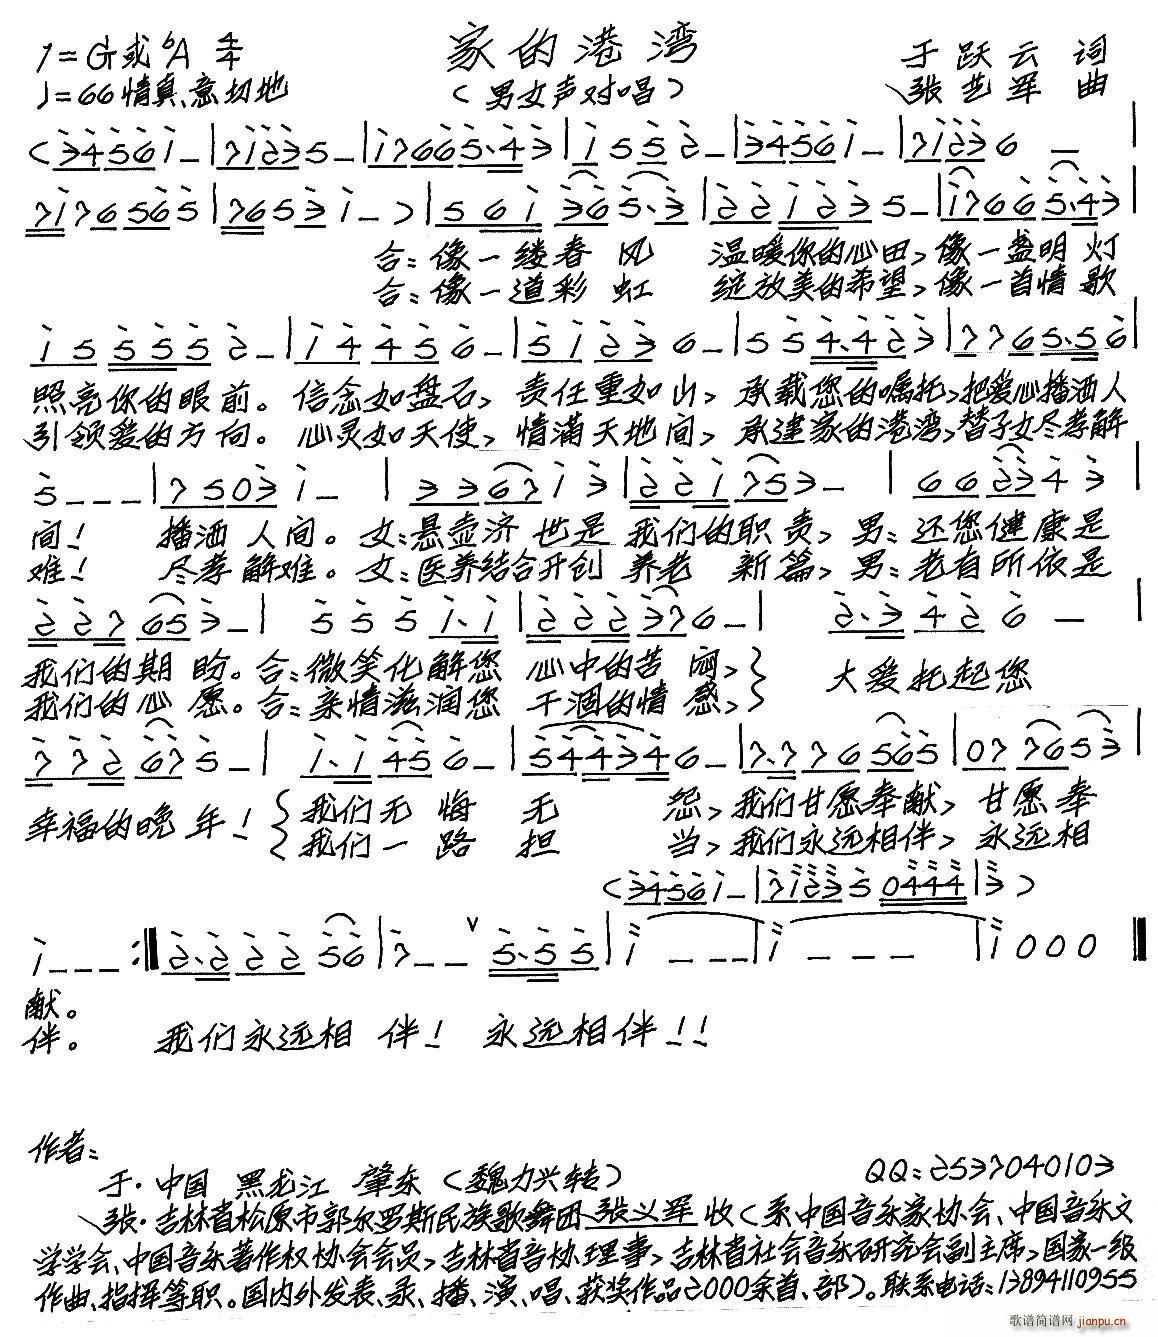 家的港湾
1=G或♭A 4/4
于跃云 词
♩=66 情真、意切地
(男女声对唱)
张艺军 曲
(34561-|71235-|176654 3|15552-|34561-|71236 -|
71765565|76531-)|561 3653|221235-|1766543|
合:像一缕春 风 温暖你的心田,像一盏明 灯
合:像一道彩 虹 绽放美的希望,像一首情 歌
155552-|14456-|51236-|554.423|7765.556|
照亮你的眼前。信念如盘石,责任重如山,承载您的嘱托,把爱心播洒人
引领爱的方向。心灵如天使,情满天地间,承建家的港湾,替子女尽孝解
5---|75031-|336713|221753-|662343|
间! 播洒人间。女:悬壶济世是我们的职责,男:还您健康是
难! 尽孝解难。女:医养结合开创养老 新篇,男:老有所依是
227653-|5551.1|2222376-|2.3426-|
我们的期盼。合:微笑化解您 心中的苦闷,} 大爱托起您
我们的心愿。合:亲情滋润您 干涸的情感,}
772675-|1.1456-|544346-|7.776565|077653|
幸福的晚年!{我们无悔 无 怨,我们甘愿奉献,甘愿奉
{我们一路 担 当,我们永远相伴,永远相
(34561-|712350444|3)
1---:‖2.22256|7--ˇ5.55|1---|1---|1000‖
献。
伴。 我们永远相 伴! 永远相伴!!
作者:
于·中国 黑龙江 肇东(魏力兴转) QQ:2537040103
张·吉林省松原市郭尔罗斯民族歌舞团张义军 收(系中国音乐家协会、中国音乐文
学学会、中国音乐著作权协会会员,吉林省音协理事,吉林省社会音乐研究会副主席,国家一级
作曲、指挥等职。国内外发表、录、播、演、唱、获奖作品2000余首、部)。联系电话:13894110955
歌谱简谱网 jianpu.cn